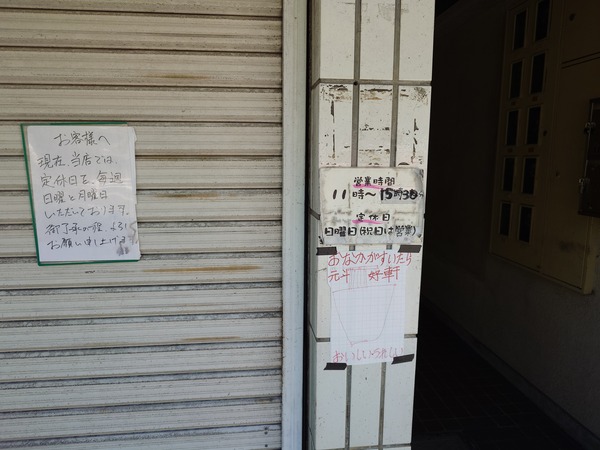 お客様へ
現在、当店では、
定休日を、毎週
日曜と月曜日
いただいております。
御了承の程、よろしく
お願い申し上げます
営業時間
11時〜15時30
定休日
日曜日(祝日は営業)
おなかがすいたら
元半 好軒
おいしい